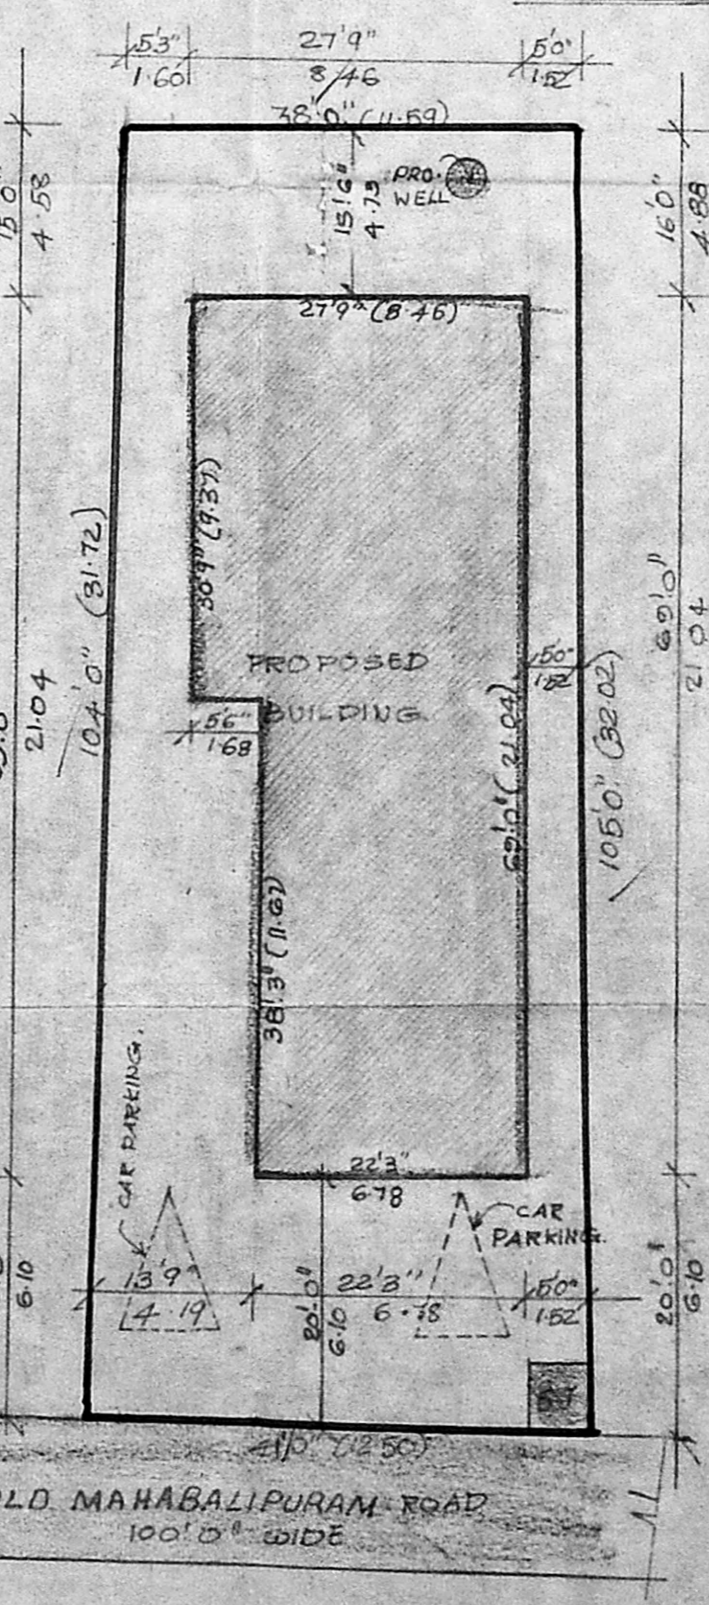 5'3"
1.60
27'9"
8.46
5'0"
1.52
38'.0." (11.59)
15'0"
4.58
15'.6"
4.73
PRO.
WELL
16'0"
4.88
27'9" (8.46)
30'9" (9.37)
104'.0" (31.72)
PROPOSED
BUILDING.
5'6"
1.68
21.04
69'.0" (21.04)
5'0"
1.52
105'.0". (32.02)
69'.0"
21.04
38'.3" (11.67)
CAR PARKING.
22'3"
6.78
CAR
PARKING.
13'9"
4.19
20'.0"
6.10
22'3"
6.78
5'0"
1.52
6.10
20'.0"
6.10
41'0" (12.50)
OLD MAHABALIPURAM ROAD
100'0" WIDE